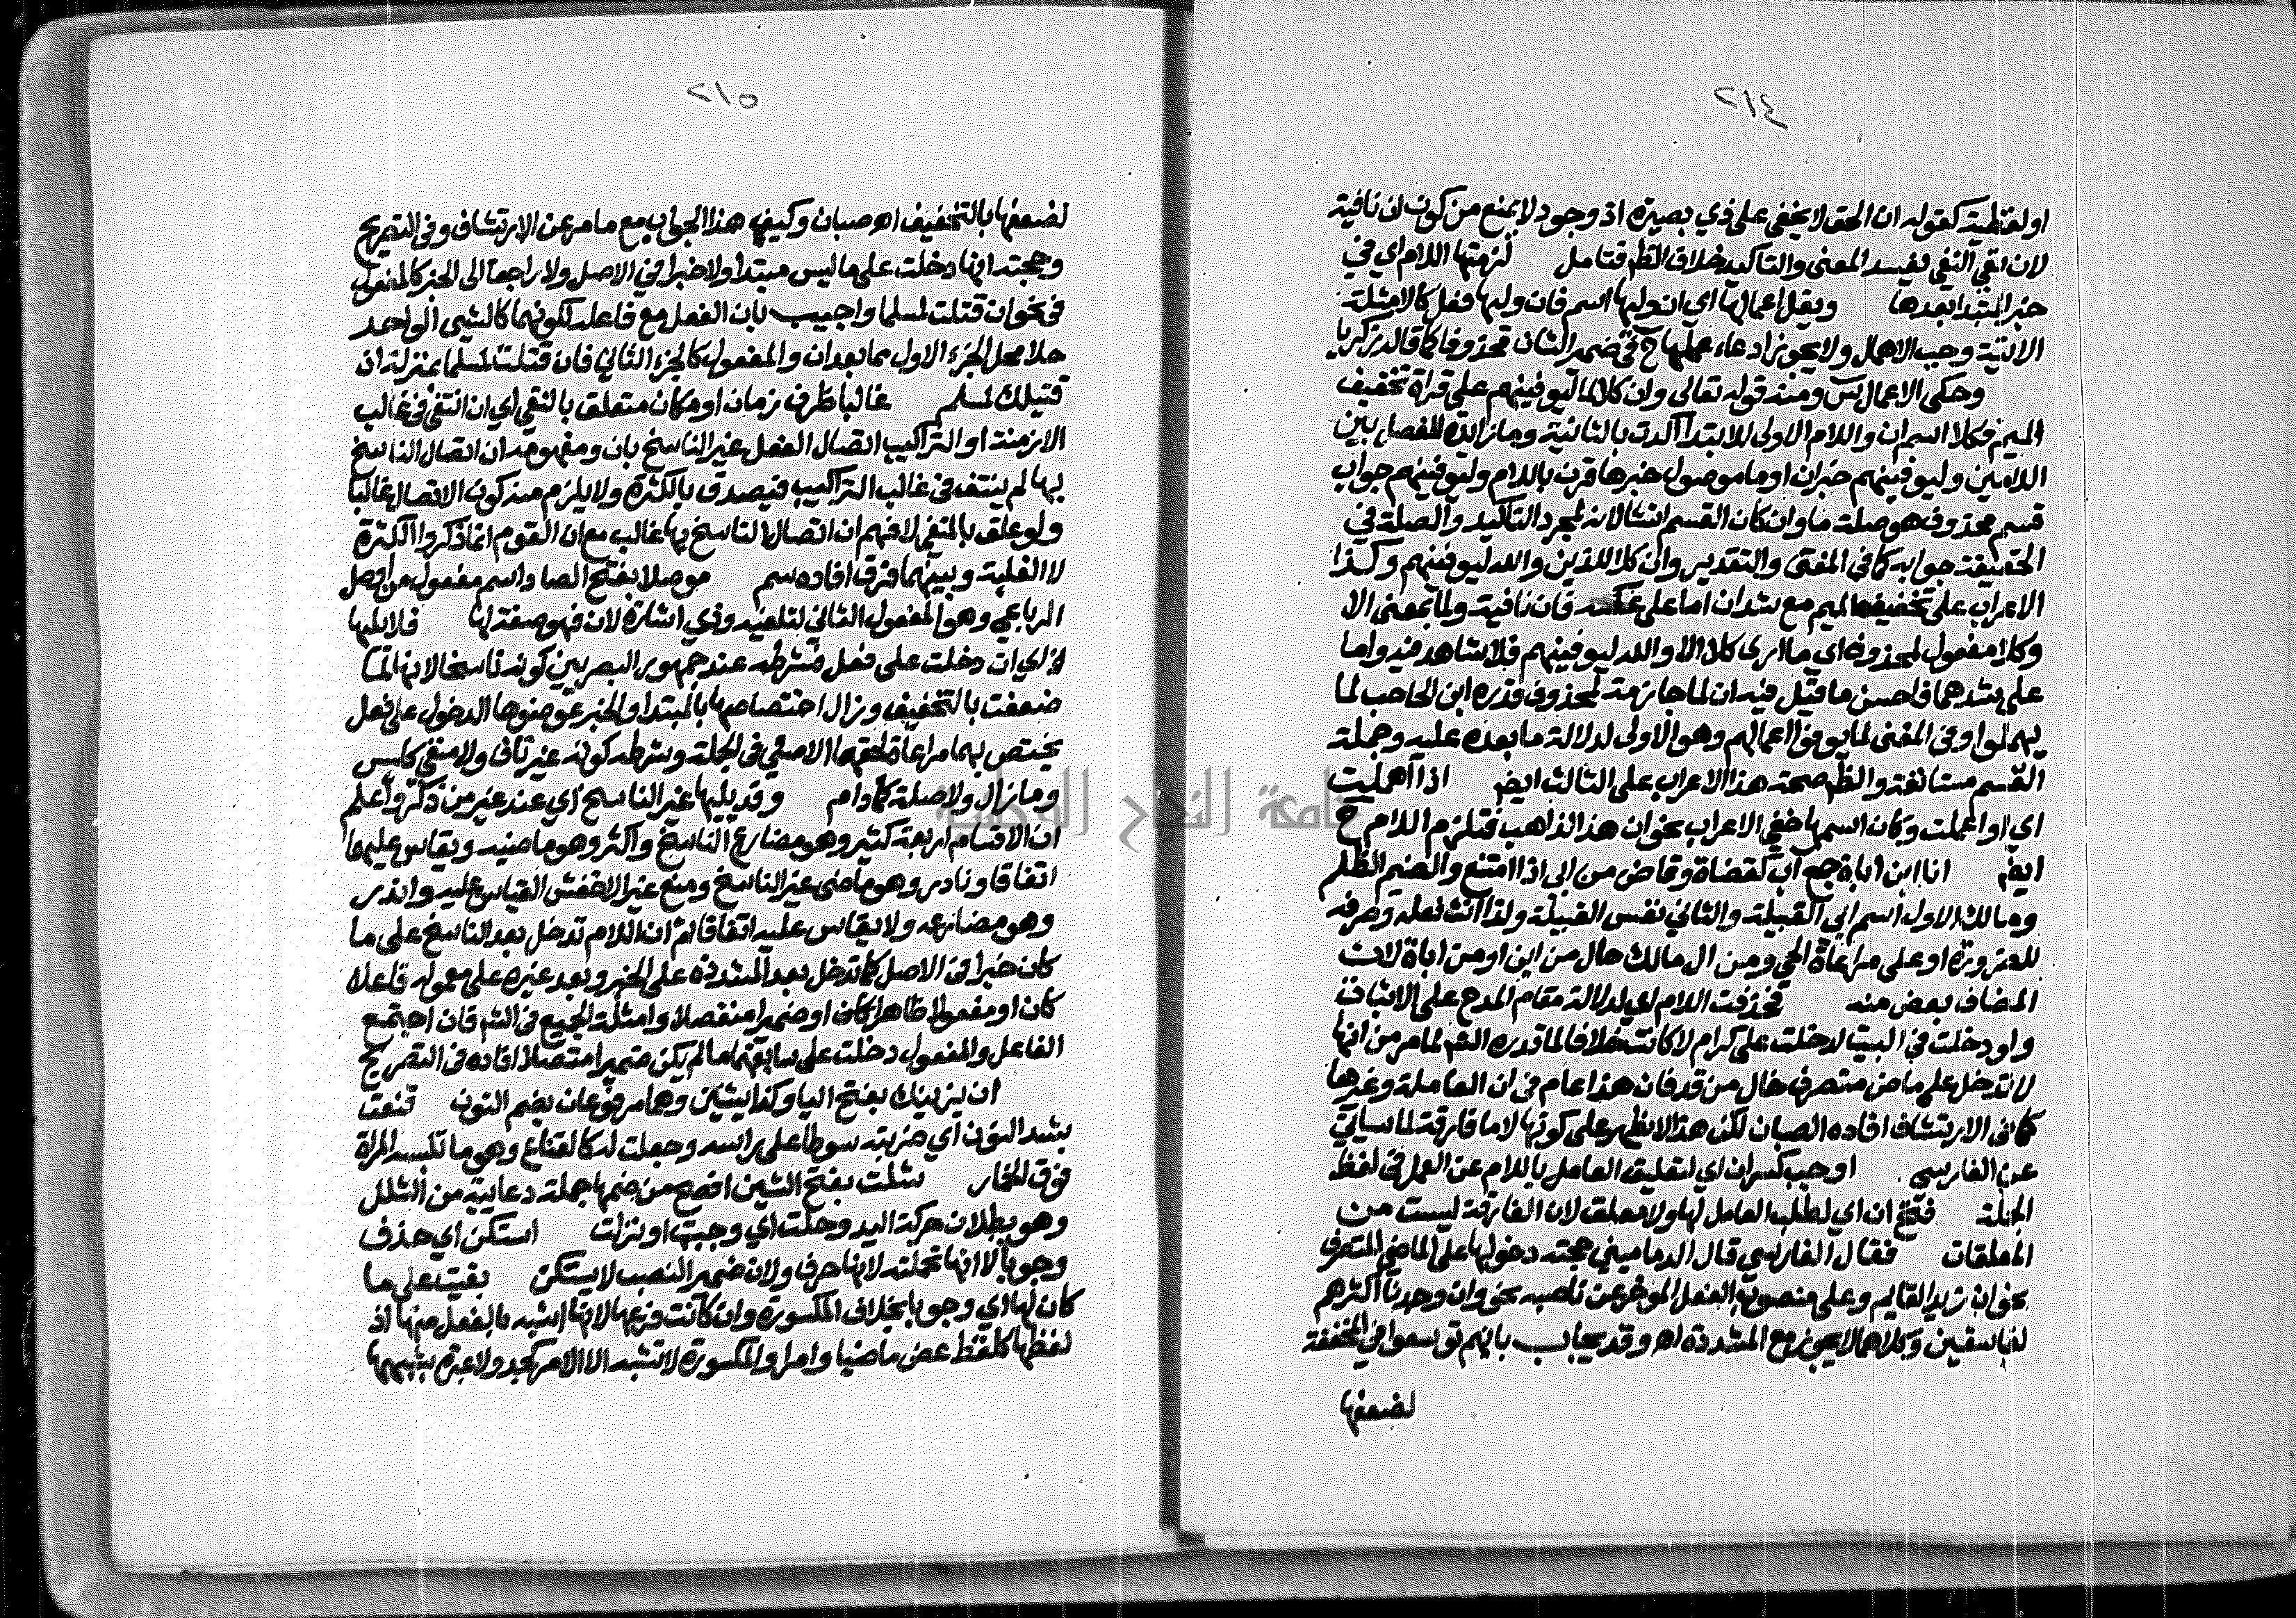 ٢١٤
او لفظية كقوله ان الحق لا يخفى على ذي بصيرة اذ وجود لا يمنع من كون ان نافية
لان نفي النفي يفسد المعنى والتاكيد خلاف الظم فتامل لزمتها اللام اي في
خبر المبتدا بعدها ويقل اعمالها اي ان وليها اسم فان وليها فعل كالامثلة
الاتية وجب الاهمال ولا يجوز ادعاء عملها ح في ضمير الشان محذوفا كما قاله زكريا
وحكى الاعمال س ومنه قوله تعالى وان كلا لما ليوفينهم على قراة تخفيف
الميم فكلا اسم ان واللام الاولى للابتدا اكدت بالثانية وما زائدة للفصل بين
اللامين وليوفينهم خبر ان او ما موصول خبرها قرن باللام وليوفينهم جواب
قسم محذوف هو صلة ما وان كان القسم انشا لانه لمجرد التاكيد والصلة في
الحقيقة جوابه كما في المغنى والتقدير وان كلا للذين والله ليوفينهم وكذا
الاعراب على تخفيف الميم مع شد ان اما على عكسه فان نافية ولما بمعنى الا
وكلا مفعول لمحذوف اي ما ارى كلا الا والله ليوفينهم فلا شاهد فيه واما
على شدهما فاحسن ما قيل فيه ان لما جازمة لمحذوف قدره ابن الحاجب لما
يهملوا وفى المغنى لما يوفوا اعمالهم وهو الاولى لدلالة ما بعده عليه وجملة
القسم مستانفة والظم صحة هذا الاعراب على الثالث ايضم اذا اهملت
اي او اعملت وكان اسمها خفي الاعراب نحو ان هذا لذاهب فتلزم اللام ح
ايضم انا ابن اباة جمع اب كقضاة وقاض من ابى اذا امتنع والضيم الظلم
ومالك الاول اسم ابي القبيلة والثاني نفس القبيلة ولذا انث فعله وصرفه
للضرورة او على مراعاة الحي ومن ال مالك حال من ابن او من اباة لان
المضاف بعض منه فحذفت اللام اي لدلالة مقام المدح على الاثبات
ولو دخلت في البيت لدخلت على كرام لا كانت خلافا لما قدره الشم لما مر من انها
لا تدخل على ماض متصرف خال من قد فان هذا عام فى ان العاملة وغيرها
كما فى الارتشاف افاده الصبان لكن هذا لا يظهر على كونها لاما فارقة لما سياتي
عن الفارسي اوجب كسر ان اي لتعليق العامل باللام عن العمل في لفظ
الجملة فتح ان اي لطلب العامل لها ولا معلق لان الفارقة ليست من
المعلقات فقال الفارسي قال الدماميني حجته دخولها على الماضي المتصرف
نحو ان زيد لقايم وعلى منصوب الفعل المؤخر عن ناصبه نحو وان وجدنا اكثرهم
لفاسقين وكلاهما لا يجوز مع المشددة اه وقد يجاب بانهم توسعوا في المخففة
لضعفها
٢١٥
لضعفها بالتخفيف اه صبان وكيف هذا الجواب مع ما مر عن الارتشاف وفى التصريح
وحجته انها دخلت على ما ليس مبتدا ولا خبرا في الاصل ولا راجعا الى الخبر كالمفعول
في نحو ان قتلت لمسلما واجيب بان الفعل مع فاعله لكونهما كالشيى الواحد
حلا محل الجزء الاول مما بعد ان والمفعول كالجزء الثاني فان قتلت لمسلما بمنزلة ان
قتيلك لمسلم غالبا ظرف زمان او مكان متعلق بالنفي اي ان انتفى في غالب
الازمنة او التراكيب اتصال الفعل غير الناسخ بان ومفهومه ان اتصال الناسخ
بها لم ينتف فى غالب التراكيب فيصدق بالكثرة ولا يلزم منه كون الاتصال غالبا
ولو علق بالمنفى لافهم ان اتصال الناسخ بها غالب مع ان القوم انما ذكروا الكثرة
لا الغلبة وبينهما فرق افاده سم موصلا بفتح الصاد اسم مفعول من اوصل
الرباعي وهو المفعول الثاني لتلفيه وذي اشارة لان فهو صفة لها فلا يليها
الخ اي ان دخلت على فعل فشرطه عند جمهور البصريين كونه ناسخا لانها لما
ضعفت بالتخفيف وزال اختصاصها بالمبتدا والخبر عوضوها الدخول على فعل
يختص بهما مراعاة لحقها الاصلي فى الجملة وشرطه كونه غير ناف ولا منفي كليس
وما زال ولا صلة كما دام وقد يليها غير الناسخ اي عند غير من ذكر واعلم
ان الاقسام اربعة كثير وهو مضارع الناسخ واكثر وهو ماضيه ويقاس عليهما
اتفاقا ونادر وهو ماضى غير الناسخ ومنع غير الاخفش القياس عليه واندر
وهو مضارعه ولا يقاس عليه اتفاقا ثم ان اللام تدخل بعد الناسخ على ما
كان خبرا فى الاصل كما تدخل بعد المشددة على الخبر وبعد غيره على معموله فاعلا
كان او مفعولا ظاهرا كان او ضميرا منفصلا وامثلة الجميع فى الشم فان اجتمع
الفاعل والمفعول دخلت على سابقهما ما لم يكن ضميرا متصلا افاده فى التصريح
ان يزينك بفتح اليا وكذا يشين وهما مرفوعان بضم النون قنعت
بشد النون اي ضربته سوطا على راسه وجعلت له كالقناع وهو ما تلبسه المراة
فوق الخمار شلت بفتح الشين افصح من ضمها جملة دعايية من الشلل
وهو بطلان حركة اليد وحلت اي وجبت او نزلت استكن اي حذف
وجوبا لا انها تحملته لانها حرف ولان ضمير النصب لا يستكن بقيت على ما
كان لها اي وجوبا بخلاف المكسورة وان كانت فرعها لانها اشبه بالفعل منها اذ
لفظها كلفظ عض ماضيا وامرا والمكسورة لا تشبه الا الامر كجد ولا عبرة بشبهها
جامعة النجاح الوطنية